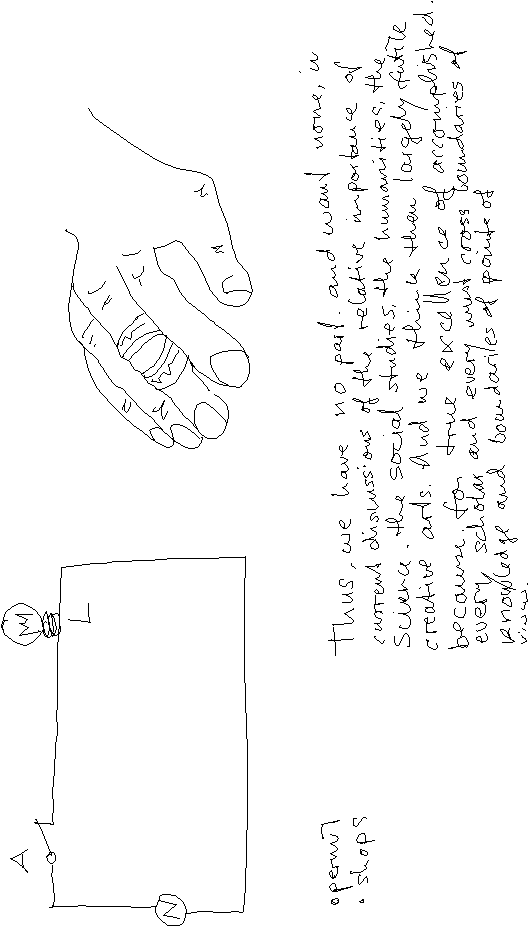 A
L
N
Thus, we have no part. and want none, in
current discussions of the relative importance of
Science. the social studies, the humanities, the
creative arts. And we think them largely futile
because. for true excellence of accomplished.
every scholar and every must cross boundaries of
knowledge and boundaries of points of
view.
permit
shops